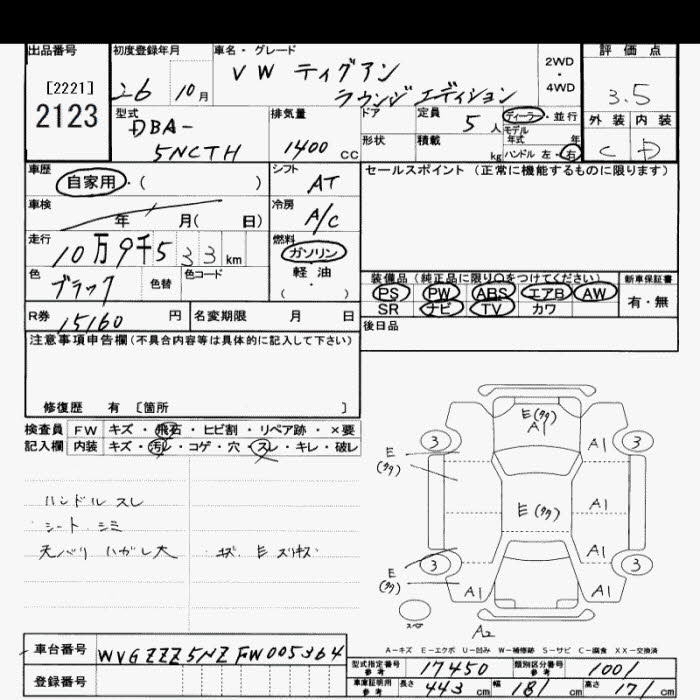 出品番号
[2221]
2123
初度登録年月
26 10月
車名・グレード
VW ティグアン
ラウンジ エディション
2WD
・
4WD
評価点
3.5
外装 内装
C D
型式
DBA-
5NCTH
排気量
1400 cc
ドア
定員
5人
形状
積載
kg
ディーラー・並行
モデル年式 年
ハンドル 左・右
車歴
自家用・( )
シフト
AT
セールスポイント (正常に機能するものに限ります)
車検
年 月( 日)
冷房
A/C
走行
10万9千533km
燃料
ガソリン
軽油
( ・ )
色
ブラック
色替
色コード
装備品(純正品に限り○をつけてください)
PS PW ABS エアB AW
SR ナビ TV カワ
新車保証書
有・無
R券
15160円
名変期限 月 日
後日品
注意事項申告欄(不具合内容等は具体的に記入して下さい)
修復歴 有 [箇所 ]
検査員 FW キズ・飛石・ヒビ割・リペア跡・×要
記入欄 内装 キズ・汚レ・コゲ・穴・スレ・キレ・破レ
ハンドル スレ
シート シミ
天バリ ハガレ大
E(タタ)
A1
3
A1
3
E
(タタ)
A1
E(タタ)
A1
3
E
(タタ)
3
A1
A1
スペア
A2
A-キズ E-エクボ U-凹み W-補修跡 S-サビ C-腐食 XX-交換済
車台番号
WVGZZZ5NZFW005364
登録番号
型式指定番号
参考
17450
類別区分番号
参考
1001
車庫証明用
参考
長さ 443cm 幅 181cm 高さ 171cm